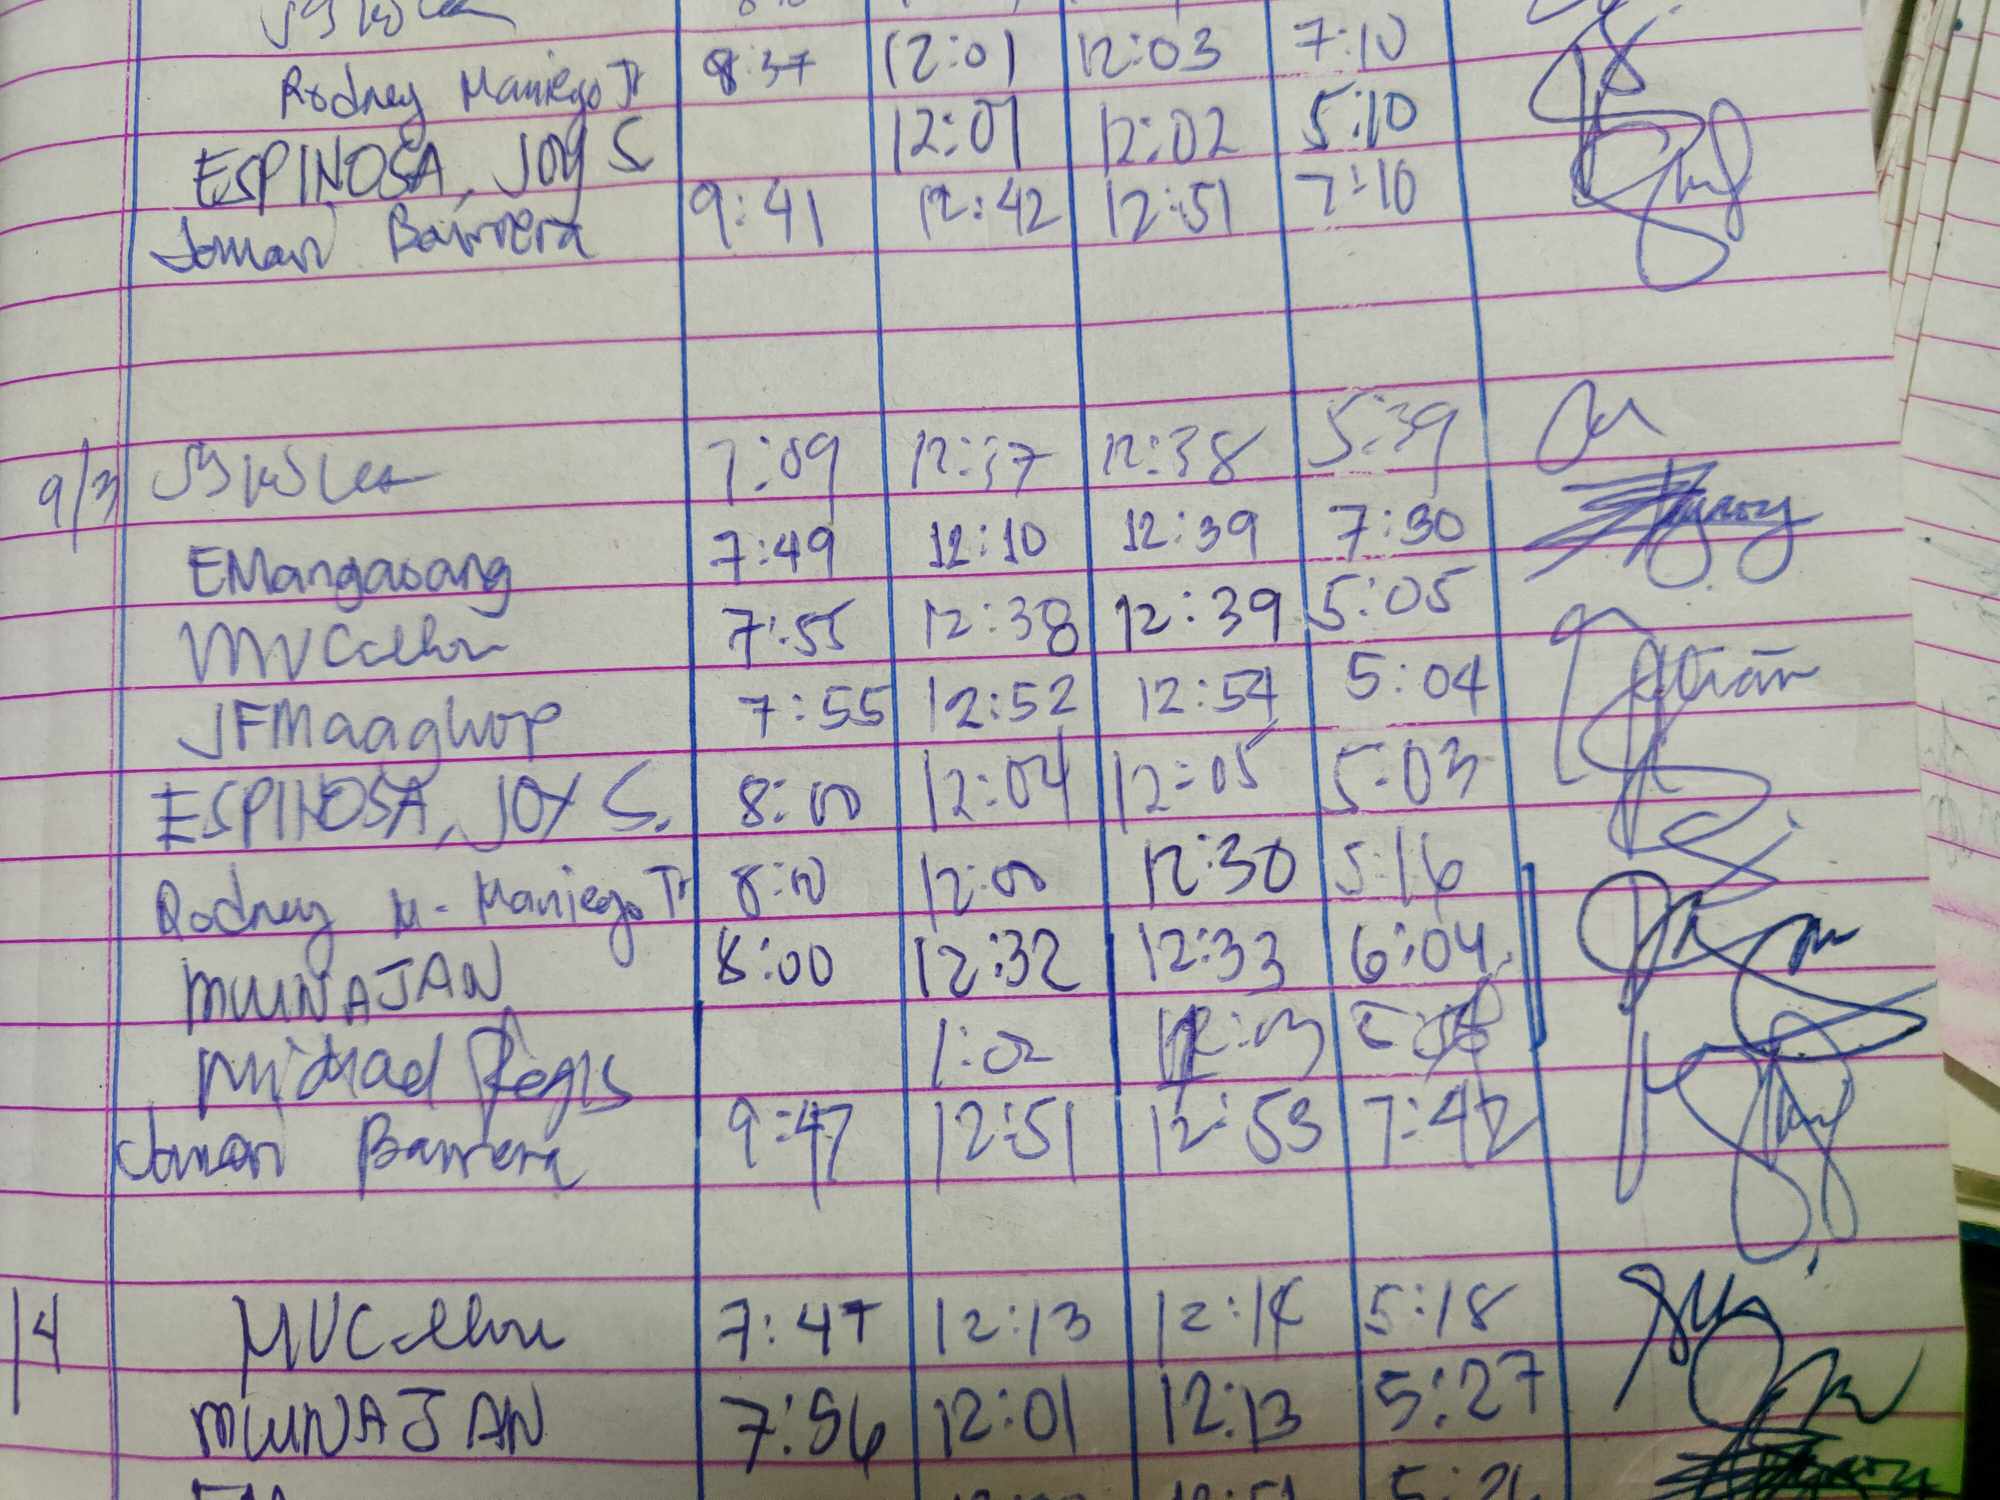 Rodney Maniego Jr 8:37 12:01 12:03 7:10
ESPINOSA, JOY S 12:01 12:02 5:10
Jomari Barrera 9:41 12:42 12:51 7:10
9/3 7:09 12:37 12:38 5:39
EMangaoang 7:49 12:10 12:39 7:30
7:55 12:38 12:39 5:05
7:55 12:52 12:54 5:04
ESPINOSA, JOY S. 8:00 12:04 12:05 5:03
Rodney M. Maniego Jr 8:00 12:00 12:30 5:16
MWNAJAN 8:00 12:32 12:33 6:04
Michael Regis 1:02 12:03
Jomari Barrera 9:47 12:51 12:53 7:42
/4 7:47 12:13 12:14 5:18
MWNAJAN 7:56 12:01 12:13 5:27